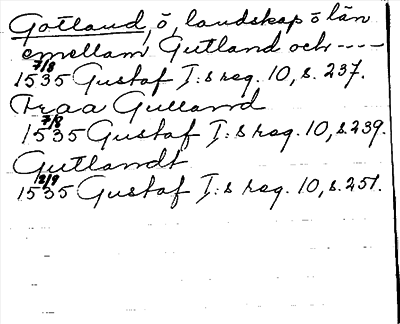 Gotland, ö, landskap o län
emellam Gutland och ----
7/8
1535 Gustaf I:s reg. 10, s. 237.
Fraa Gulland
7/8
1535 Gustaf I:s reg. 10, s. 239.
Gutlandt
12/9
1535 Gustaf I:s reg. 10, s. 251.